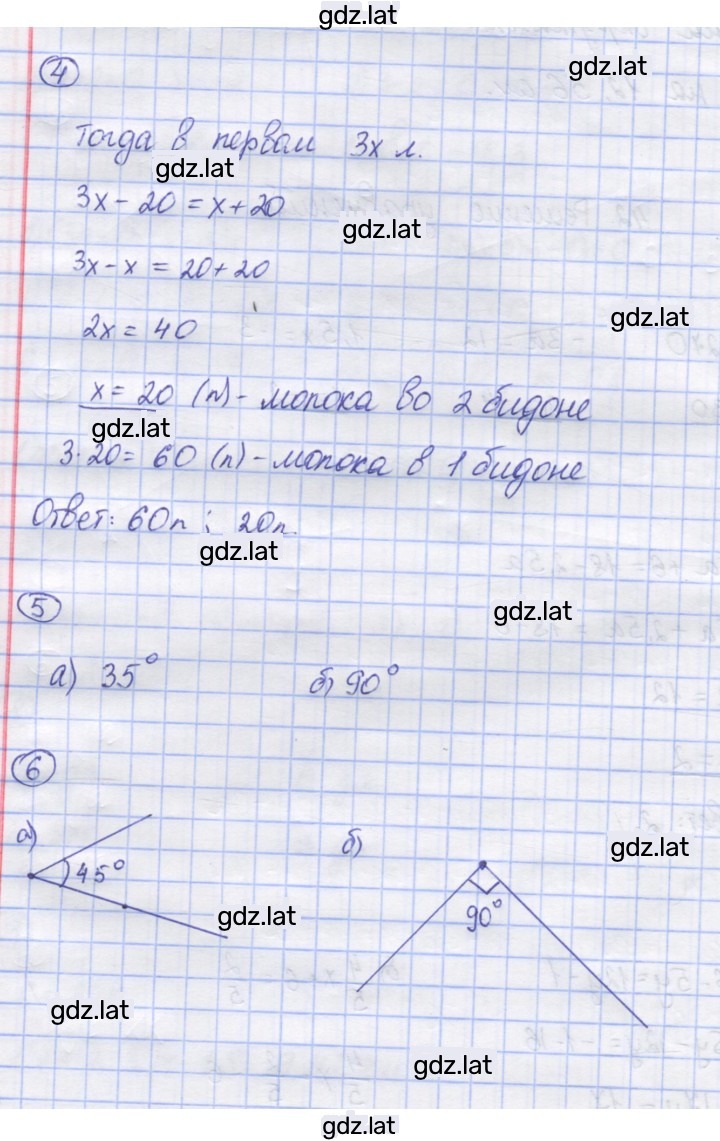 gdz.lat
4
gdz.lat
Тогда в первом 3х л.
gdz.lat
3x - 20 = x + 20
gdz.lat
3x - x = 20 + 20
gdz.lat
2x = 40
x = 20 (л) - молока во 2 бидоне
gdz.lat
3 · 20 = 60 (л) - молока в 1 бидоне
Ответ: 60л ; 20л.
gdz.lat
5
gdz.lat
а) 35° б) 90°
6
а) б)
gdz.lat
45°
gdz.lat
90°
gdz.lat
gdz.lat
gdz.lat